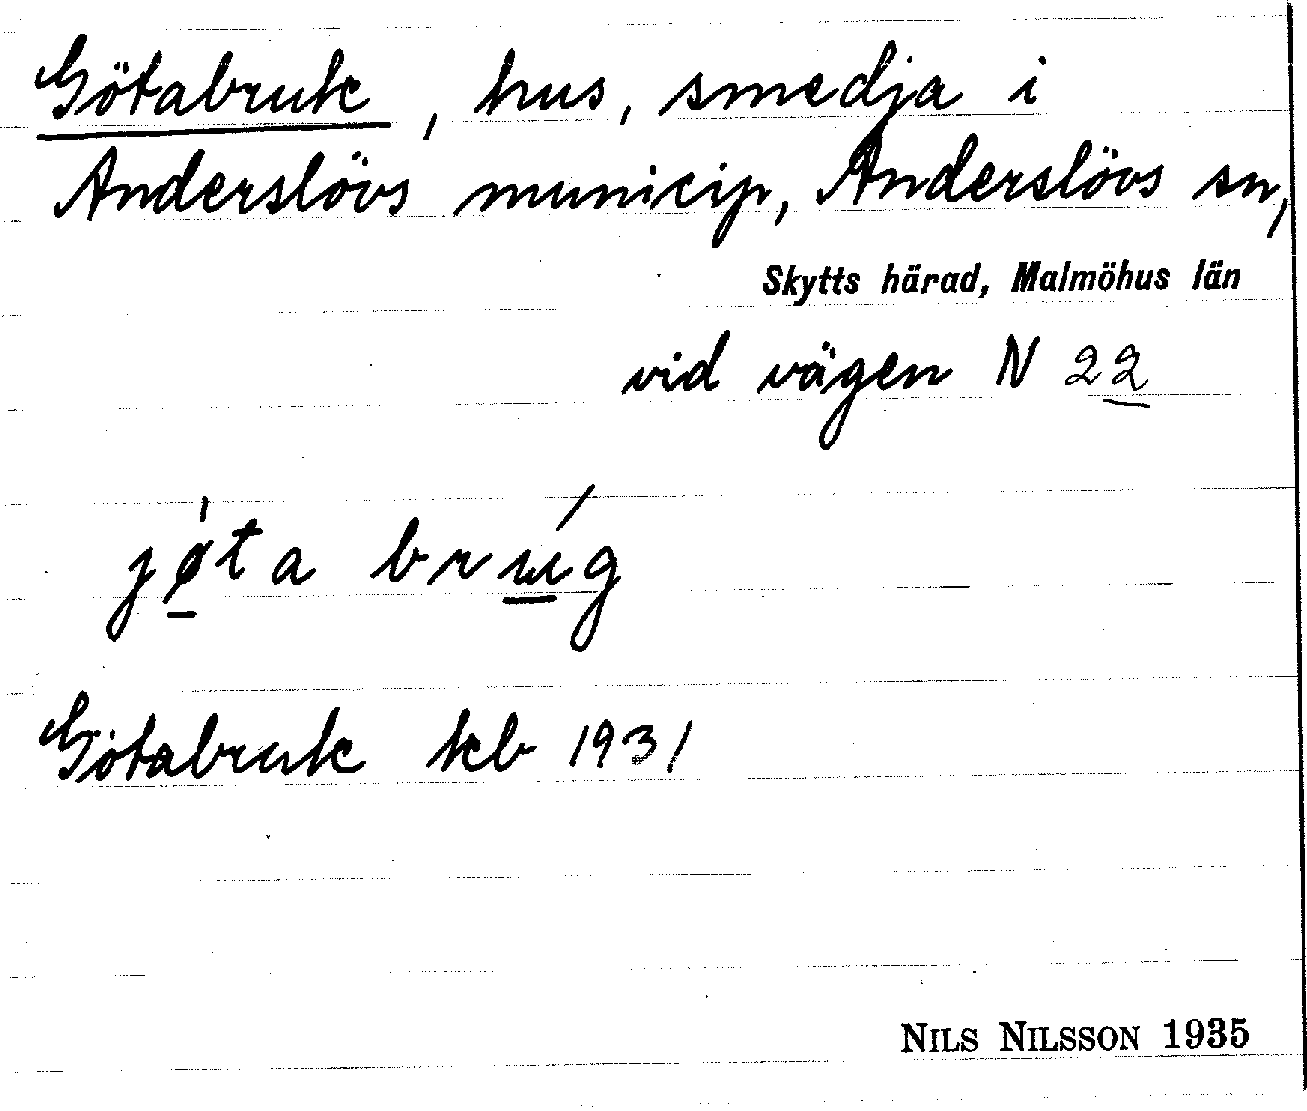 Götabruk, hus, smedja i
Anderslövs municip, Anderslövs sn,
Skytts härad, Malmöhus län
vid vägen N 22
jø̀ta brúg
Götabruk kb 1931
NILS NILSSON 1935